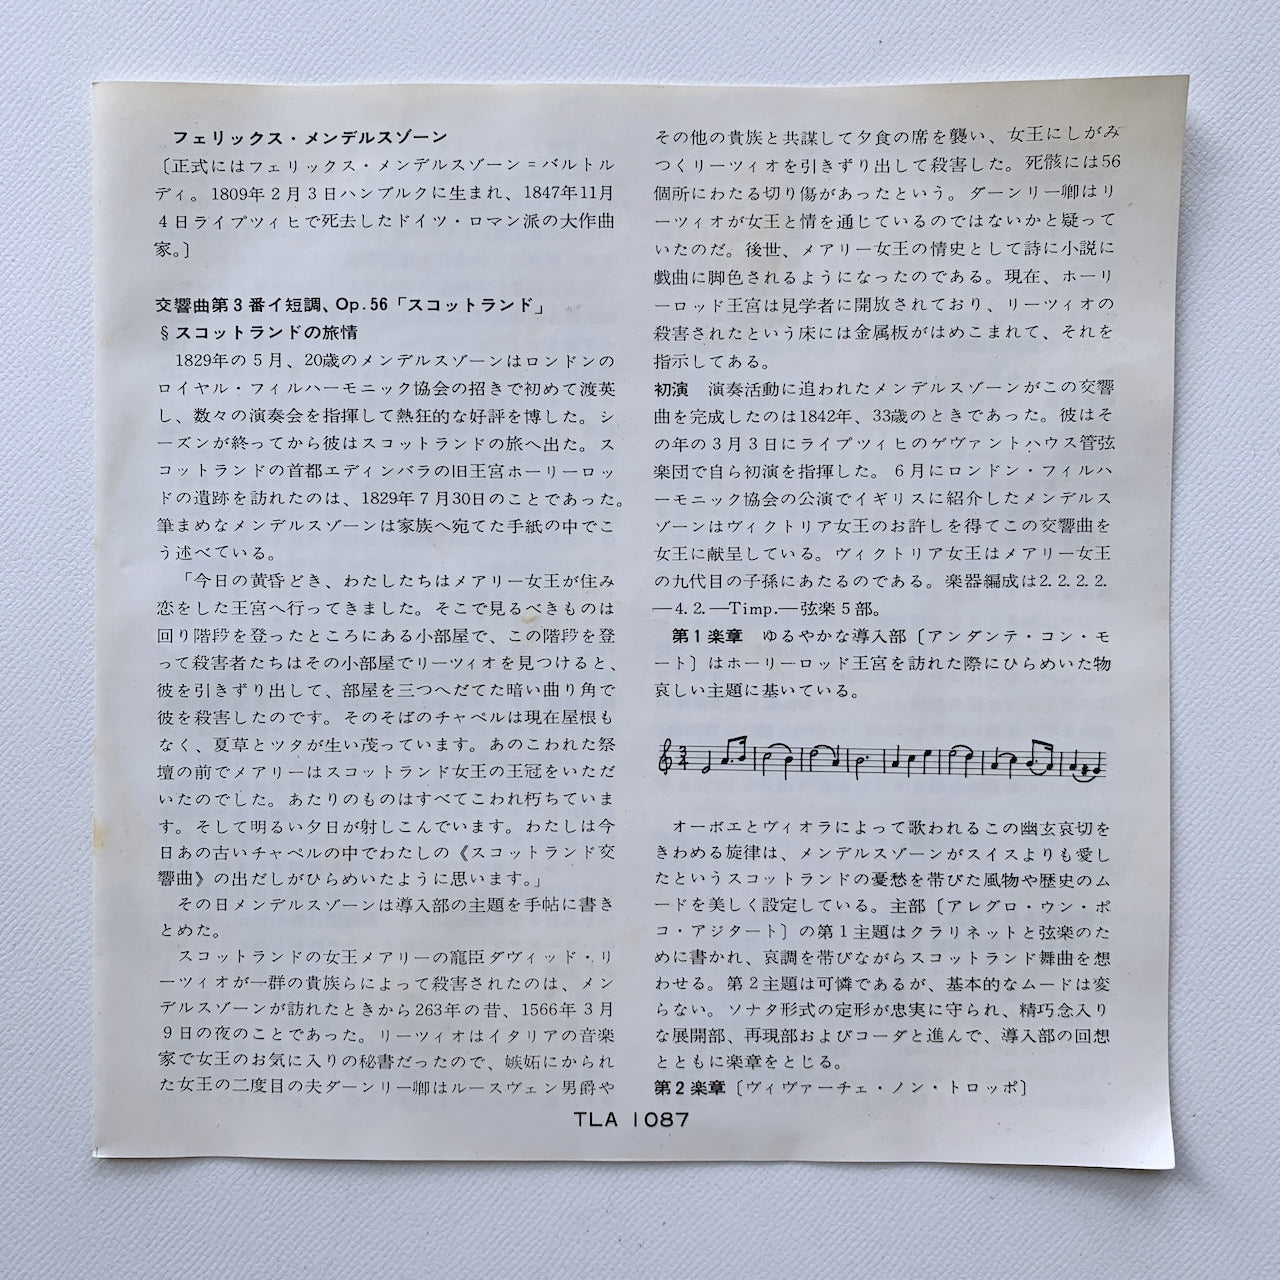 フェリックス・メンデルスゾーン
〔正式にはフェリックス・メンデルスゾーン＝バルトル
ディ。1809年2月3日ハンブルクに生まれ、1847年11月
4日ライプツィヒで死去したドイツ・ロマン派の大作曲
家。〕
交響曲第3番イ短調、Op.56「スコットランド」
§スコットランドの旅情
1829年の5月、20歳のメンデルスゾーンはロンドンの
ロイヤル・フィルハーモニック協会の招きで初めて渡英
し、数々の演奏会を指揮して熱狂的な好評を博した。シ
ーズンが終ってから彼はスコットランドの旅へ出た。ス
コットランドの首都エディンバラの旧王宮ホーリーロッ
ドの遺跡を訪れたのは、1829年7月30日のことであった。
筆まめなメンデルスゾーンは家族へ宛てた手紙の中でこ
う述べている。
「今日の黄昏どき、わたしたちはメアリー女王が住み
恋をした王宮へ行ってきました。そこで見るべきものは
回り階段を登ったところにある小部屋で、この階段を登
って殺害者たちはその小部屋でリーツィオを見つけると、
彼を引きずり出して、部屋を三つへだてた暗い曲り角で
彼を殺害したのです。そのそばのチャペルは現在屋根も
なく、夏草とツタが生い茂っています。あのこわれた祭
壇の前でメアリーはスコットランド女王の王冠をいただ
いたのでした。あたりのものはすべてこわれ朽ちていま
す。そして明るい夕日が射しこんでいます。わたしは今
日あの古いチャペルの中でわたしの《スコットランド交
響曲》の出だしがひらめいたように思います。」
その日メンデルスゾーンは導入部の主題を手帖に書き
とめた。
スコットランドの女王メアリーの寵臣ダヴィッド・リ
ーツィオが一群の貴族らによって殺害されたのは、メン
デルスゾーンが訪れたときから263年の昔、1566年3月
9日の夜のことであった。リーツィオはイタリアの音楽
家で女王のお気に入りの秘書だったので、嫉妬にかられ
た女王の二度目の夫ダーンリー卿はルースヴェン男爵や
その他の貴族と共謀して夕食の席を襲い、女王にしがみ
つくリーツィオを引きずり出して殺害した。死骸には56
個所にわたる切り傷があったという。ダーンリー卿はリ
ーツィオが女王と情を通じているのではないかと疑って
いたのだ。後世、メアリー女王の情史として詩に小説に
戯曲に脚色されるようになったのである。現在、ホーリ
ーロッド王宮は見学者に開放されており、リーツィオの
殺害されたという床には金属板がはめこまれて、それを
指示してある。
初演　演奏活動に追われたメンデルスゾーンがこの交響
曲を完成したのは1842年、33歳のときであった。彼はそ
の年の3月3日にライプツィヒのゲヴァントハウス管弦
楽団で自ら初演を指揮した。6月にロンドン・フィルハ
ーモニック協会の公演でイギリスに紹介したメンデルス
ゾーンはヴィクトリア女王のお許しを得てこの交響曲を
女王に献呈している。ヴィクトリア女王はメアリー女王
の九代目の子孫にあたるのである。楽器編成は2.2.2.2.
―4.2.―Timp.―弦楽5部。
第1楽章　ゆるやかな導入部〔アンダンテ・コン・モ
ート〕はホーリーロッド王宮を訪れた際にひらめいた物
哀しい主題に基いている。
オーボエとヴィオラによって歌われるこの幽玄哀切を
きわめる旋律は、メンデルスゾーンがスイスよりも愛し
たというスコットランドの憂愁を帯びた風物や歴史のム
ードを美しく設定している。主部〔アレグロ・ウン・ポ
コ・アジタート〕の第1主題はクラリネットと弦楽のた
めに書かれ、哀調を帯びながらスコットランド舞曲を想
わせる。第2主題は可憐であるが、基本的なムードは変
らない。ソナタ形式の定形が忠実に守られ、精巧念入り
な展開部、再現部およびコーダと進んで、導入部の回想
とともに楽章をとじる。
第2楽章〔ヴィヴァーチェ・ノン・トロッポ〕
TLA 1087